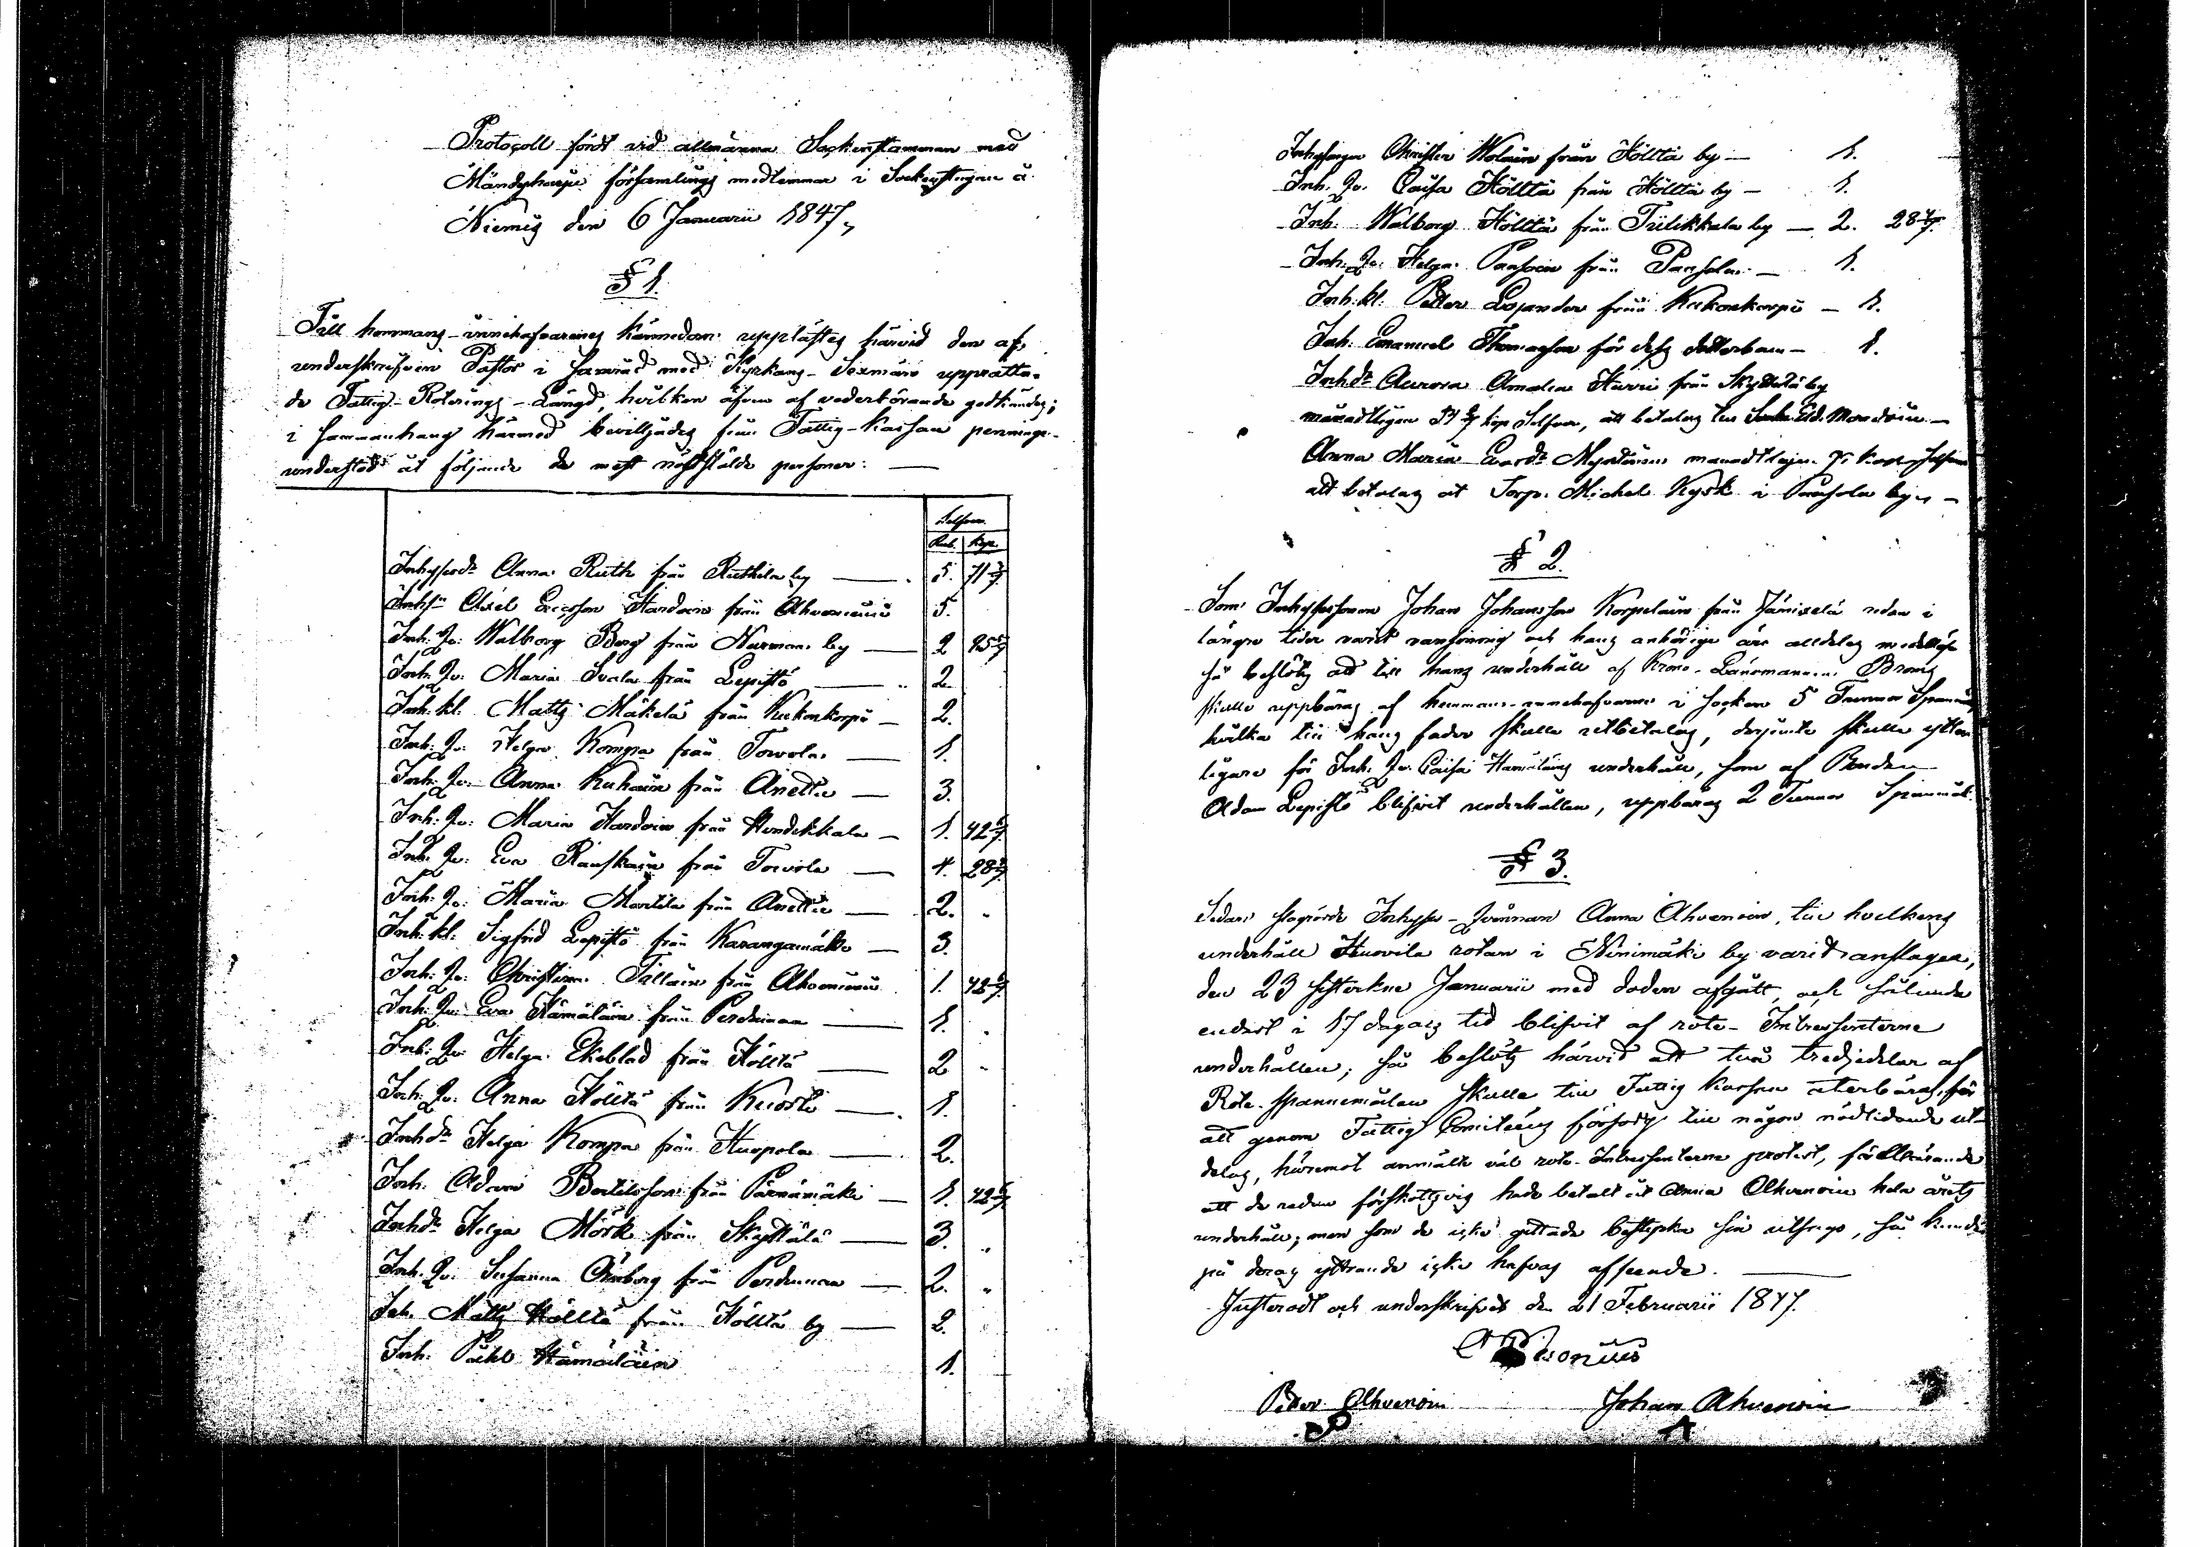 Protocoll fördt vid allmänna Sockenstämman med
Mäntyharju församlings medlemmar i Sockenstugan å
Niemis den 6 Januarii 1847,
§ 1.
Till hemmans-innehafvarenes kännedom upplästes härvid den af
underskrifven Pastor i samråd med Kyrkans-Sexmän upprätta-
de Fattig-Roterings-Längd, hvilken äfven af vederbörande godkändes;
i sammanhang härmed beviljades från Fattig-Kassan penninge-
understöd åt följande de mest nödstälde personer:
Silfver.
Rub. Kop.
Inhysesdr Anna Ruth från Ruthila by 5. 71 3/7.
Inhsn Axel Ericsson Hardoin från Ahvenniemi 5.
Inh: Qv: Walborg Berg från Nurmaa by 2 85 5/7
Inh: Qv: Maria Svala från Lepistö 2.
Inh: kl. Matts Mäkelä från Kukonkorpi 2.
Inh: Qv: Helga Kompa från Toivola 1.
Inh: Qv: Anna Kuhain från Anettu 3.
Inh: Qv: Maria Hardoin från Hendikkala 1. 42 6/7
Inh: Qv: Eva Rauskain från Toivola 4. 28 4/7
Inh: Qv: Maria Marttila från Anettu 2.
Inh: kl: Sigfrid Lepistö från Karangamäki 3.
Inh: Qv: Christina Tallain från Ahvenniemi 1. 42 6/7
Inh: Qv: Eva Hämäläin från Pertunmaa 1.
Inh: Qv: Helga Ekeblad från Hölttä 2
Inh: Qv: Anna Hölttä från Kuorti 1.
Inhdr Helga Kompa från Huopola 2.
Inh. Adam Bertilsson från Pärnämäki 1. 42 6/7
Inhdr Helga Mörk från Skyttälä 3.
Inh: Qv: Susanna Örnborg från Pertunmaa 2.
Inh. Matts Hölttä från Hölttä by 2.
Inh. Påhl Hämäläin 1.
Inhysingen Christer Wolain från Hölttä by 1.
Inh. Qv. Caisa Hölttä från Hölttä by 1.
Inh. Walborg Hölttä från Tiilikkala by 2. 28 4/7.
Inh. Qv. Helga Pansoin från Pansola 1.
Inh: kl. Petter Lojander från Kukonkorpi 1.
Inh. Emanuel Thomasson för dess dotterbarn 1.
Inhdr Aurora Amalia Harri från Skyttälä by
månadtligen kop Silfver, att betalas till Mondoin
Anna Maria Evardr månadtligen kop Silfver
att betalas åt Torp. Michel Kysk i Pansola by
§ 2.
Som Inhysesmannen Johan Johansson Korpelain från Jänixelä redan i
längre tider varit vansinnig och hans anhörige äro alldeles medellöse
så beslöts att till hans underhåll af Krono-Länsmannen Brons
skulle uppbäras af hemmans-innehafvarne i socken 5 Tunnor Spannmål
hvilka till hans fader skulle utbetalas, derjemte skulle ytter-
ligare för Inh. Qv. Caisa Hämäläins underhåll, som af Bonden
Adam Lepistö blifvit underhållen, uppbäras 2 Tunnor Spannmål.
§ 3.
Sedan Inhyses-Qvinnan Anna Ahvenoin, till hvilkens
underhåll Huovila rotan i Ninimäki by varit anslagen,
den 23 sistledne Januarii med döden afgått, och således
endast i 17 dagars tid blifvit af rote-Intressenterne
underhållen; så beslöts härvid att två tredjedelar af
Rote-spannemålen skulle till Fattig Kassan återbäras, för
att genom Fattig Comiteens försorg till någon nödlidande ut-
delas, häremot anmälte väl rote-Intressenterne protest, förklarande
att de redan förskottsvis hade betalt åt Anna Ahvenoin hela årets
underhåll; men som de icke gittade bestyrka sin utsago, så kunde
på deras yttrande icke hafvas afseende.
Justeradt och underskrifvet den 21 Februarii 1847.
Peter Ahvenoin Johan Ahvenoin